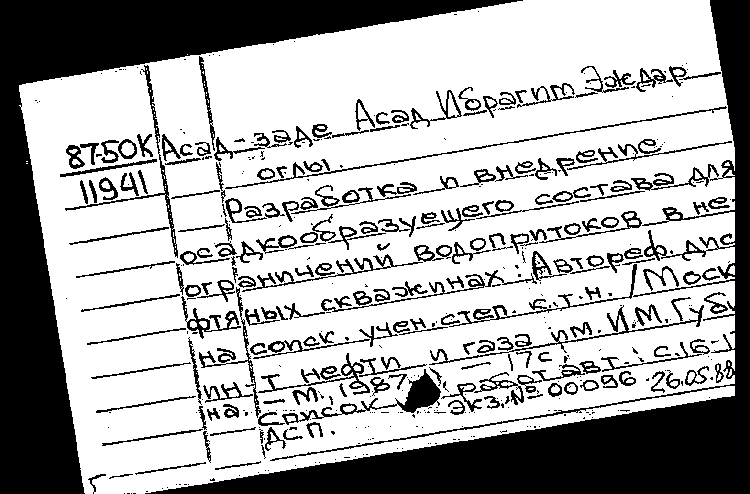 87-50К Асад-заде Асад Ибрагим Эждар
11941 оглы.
Разработка и внедрение
осадкообразующего состава для
ограничений водопритоков в не-
фтяных скважинах : Автореф. дис
на соиск. учен. степ. к.т.н. / Моск
ин-т нефти и газа им. И.М. Губ
на. — М., 1987 — 17 с
Список работ авт.: с. 16-1
ДСП. Экз. № 00096 26.05.88